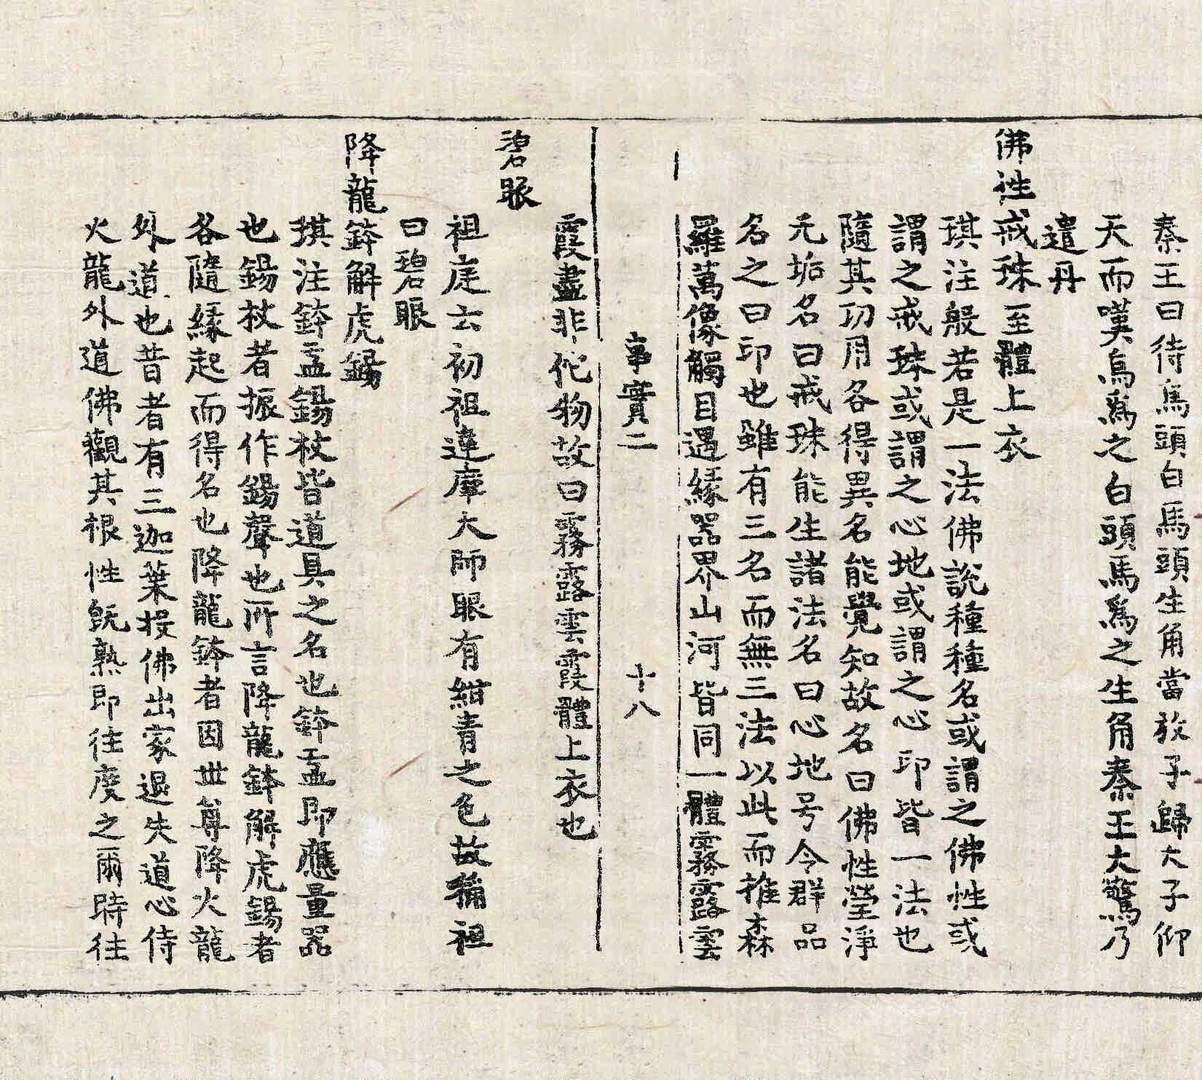 秦王曰待烏頭白馬頭生角當放子歸太子仰
天而嘆烏爲之白頭馬爲之生角秦王大驚乃
遣丹
佛性戒珠至體上衣
琪注般若是一法佛說種種名或謂之佛性或
謂之戒珠或謂之心地或謂之心印皆一法也
隨其功用各得異名能覺知故名曰佛性瑩淨
无垢名曰戒珠能生諸法名曰心地号令群品
名之曰印也雖有三名而無三法以此而推森
羅萬像觸目遇緣器界山河皆同一體霧露雲
事實二 十八
霞盡非佗物故曰霧露雲霞體上衣也
碧眼
祖庭云初祖達摩大師眼有紺青之色故稱祖
曰碧眼
降龍鉢解虎錫
琪注鉢盂錫杖皆道具之名也鉢盂即應量器
也錫杖者振作錫聲也所言降龍鉢解虎錫者
各隨緣起而得名也降龍鉢者因世尊降火龍
外道也昔者有三迦葉投佛出家退失道心侍
火龍外道佛觀其根性既熟即往度之爾時往